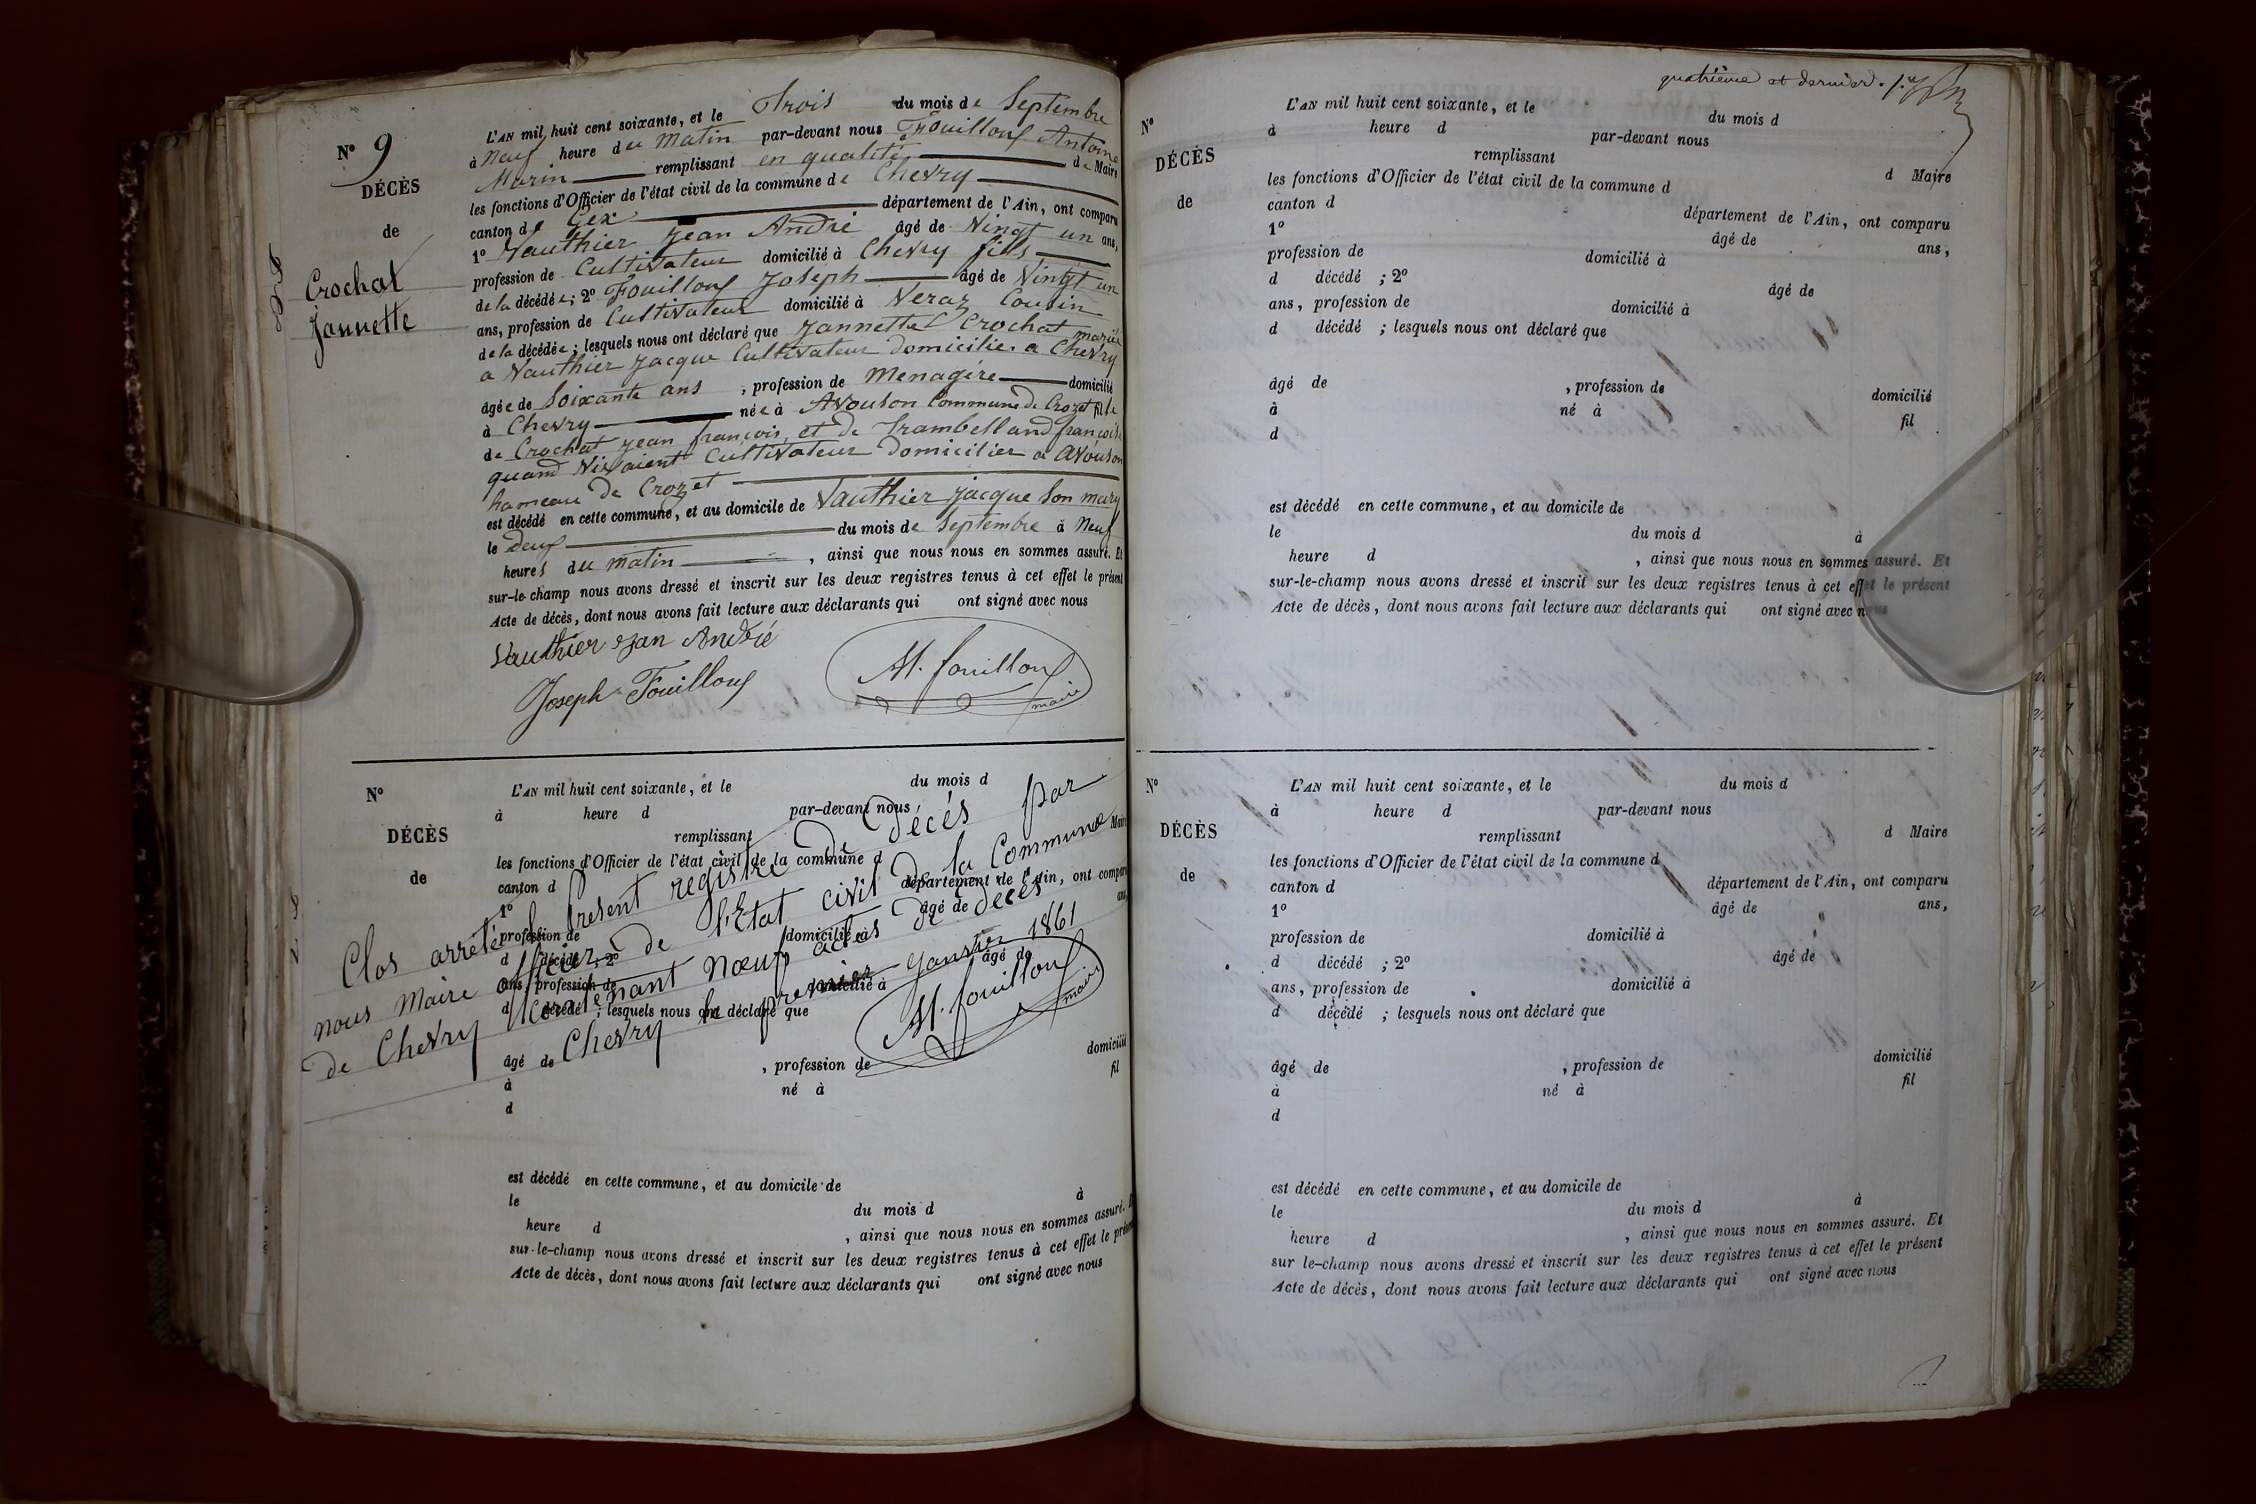 N° 9
DÉCÈS
de
Crochat
Jannette
L'AN mil huit cent soixante, et le Trois du mois de Septembre
à Neuf heure du Matin par-devant nous Fouilloux Antoine
Marin remplissant en qualité de Maire
les fonctions d'Officier de l'état civil de la commune de Chevry
canton de Gex département de l'Ain, ont comparu
1° Vauthier Jean André âgé de Vingt un ans,
profession de Cultivateur domicilié à Chevry fils
de la décédée; 2° Fouilloux Joseph âgé de Vingt un
ans, profession de Cultivateur domicilié à Veraz Cousin
de la décédée; lesquels nous ont déclaré que Jannette Crochat mariée
a Vauthier Jacque Cultivateur domicilier a Chevry
âgée de Soixante ans, profession de Menagère domicilié
à Chevry née à Avouson Commune de Crozet fille
de Crochat Jean françois et de Trambelland françoise
quand Vivaient Cultivateur Domicilier a Avouson
hameau de Crozet
est décédé en cette commune, et au domicile de Vauthier Jacque Son mary
le deux du mois de Septembre à Neuf
heures du matin, ainsi que nous nous en sommes assuré. Et
sur-le-champ nous avons dressé et inscrit sur les deux registres tenus à cet effet le présent
Acte de décès, dont nous avons fait lecture aux déclarants qui ont signé avec nous
Vauthier Jean André
Joseph Fouilloux
M. fouilloux
maire
N°
DÉCÈS
de
L'AN mil huit cent soixante, et le du mois d
à heure d par-devant nous
remplissant Maire
les fonctions d'Officier de l'état civil de la commune d
canton d département de l'Ain, ont comparu
1° âgé de ans,
profession de domicilié à
d décédé ; 2° âgé de
ans, profession de domicilié à
d décédé ; lesquels nous ont déclaré que
Clos arreté le Present registre de décés par
nous Maire officier de l'Etat civil de la Commune
de Chevry Contenant Nœuf actes de decés
Chevry le premier Janvier 1861
M. fouilloux
maire
âgé de , profession de domicilié
à né à fil
d
est décédé en cette commune, et au domicile de
le du mois d à
heure d , ainsi que nous nous en sommes assuré. Et
sur-le-champ nous avons dressé et inscrit sur les deux registres tenus à cet effet le présent
Acte de décès, dont nous avons fait lecture aux déclarants qui ont signé avec nous
quatrième et dernier.
N°
DÉCÈS
de
L'AN mil huit cent soixante, et le du mois d
à heure d par-devant nous
remplissant d Maire
les fonctions d'Officier de l'état civil de la commune d
canton d département de l'Ain, ont comparu
1° âgé de ans,
profession de domicilié à
d décédé ; 2° âgé de
ans, profession de domicilié à
d décédé ; lesquels nous ont déclaré que
âgé de , profession de domicilié
à né à fil
d
est décédé en cette commune, et au domicile de
le du mois d à
heure d , ainsi que nous nous en sommes assuré. Et
sur-le-champ nous avons dressé et inscrit sur les deux registres tenus à cet effet le présent
Acte de décès, dont nous avons fait lecture aux déclarants qui ont signé avec nous
N°
DÉCÈS
de
L'AN mil huit cent soixante, et le du mois d
à heure d par-devant nous
remplissant d Maire
les fonctions d'Officier de l'état civil de la commune d
canton d département de l'Ain, ont comparu
1° âgé de ans,
profession de domicilié à
d décédé ; 2° âgé de
ans, profession de domicilié à
d décédé ; lesquels nous ont déclaré que
âgé de , profession de domicilié
à né à fil
d
est décédé en cette commune, et au domicile de
le du mois d à
heure d , ainsi que nous nous en sommes assuré. Et
sur le-champ nous avons dressé et inscrit sur les deux registres tenus à cet effet le présent
Acte de décès, dont nous avons fait lecture aux déclarants qui ont signé avec nous